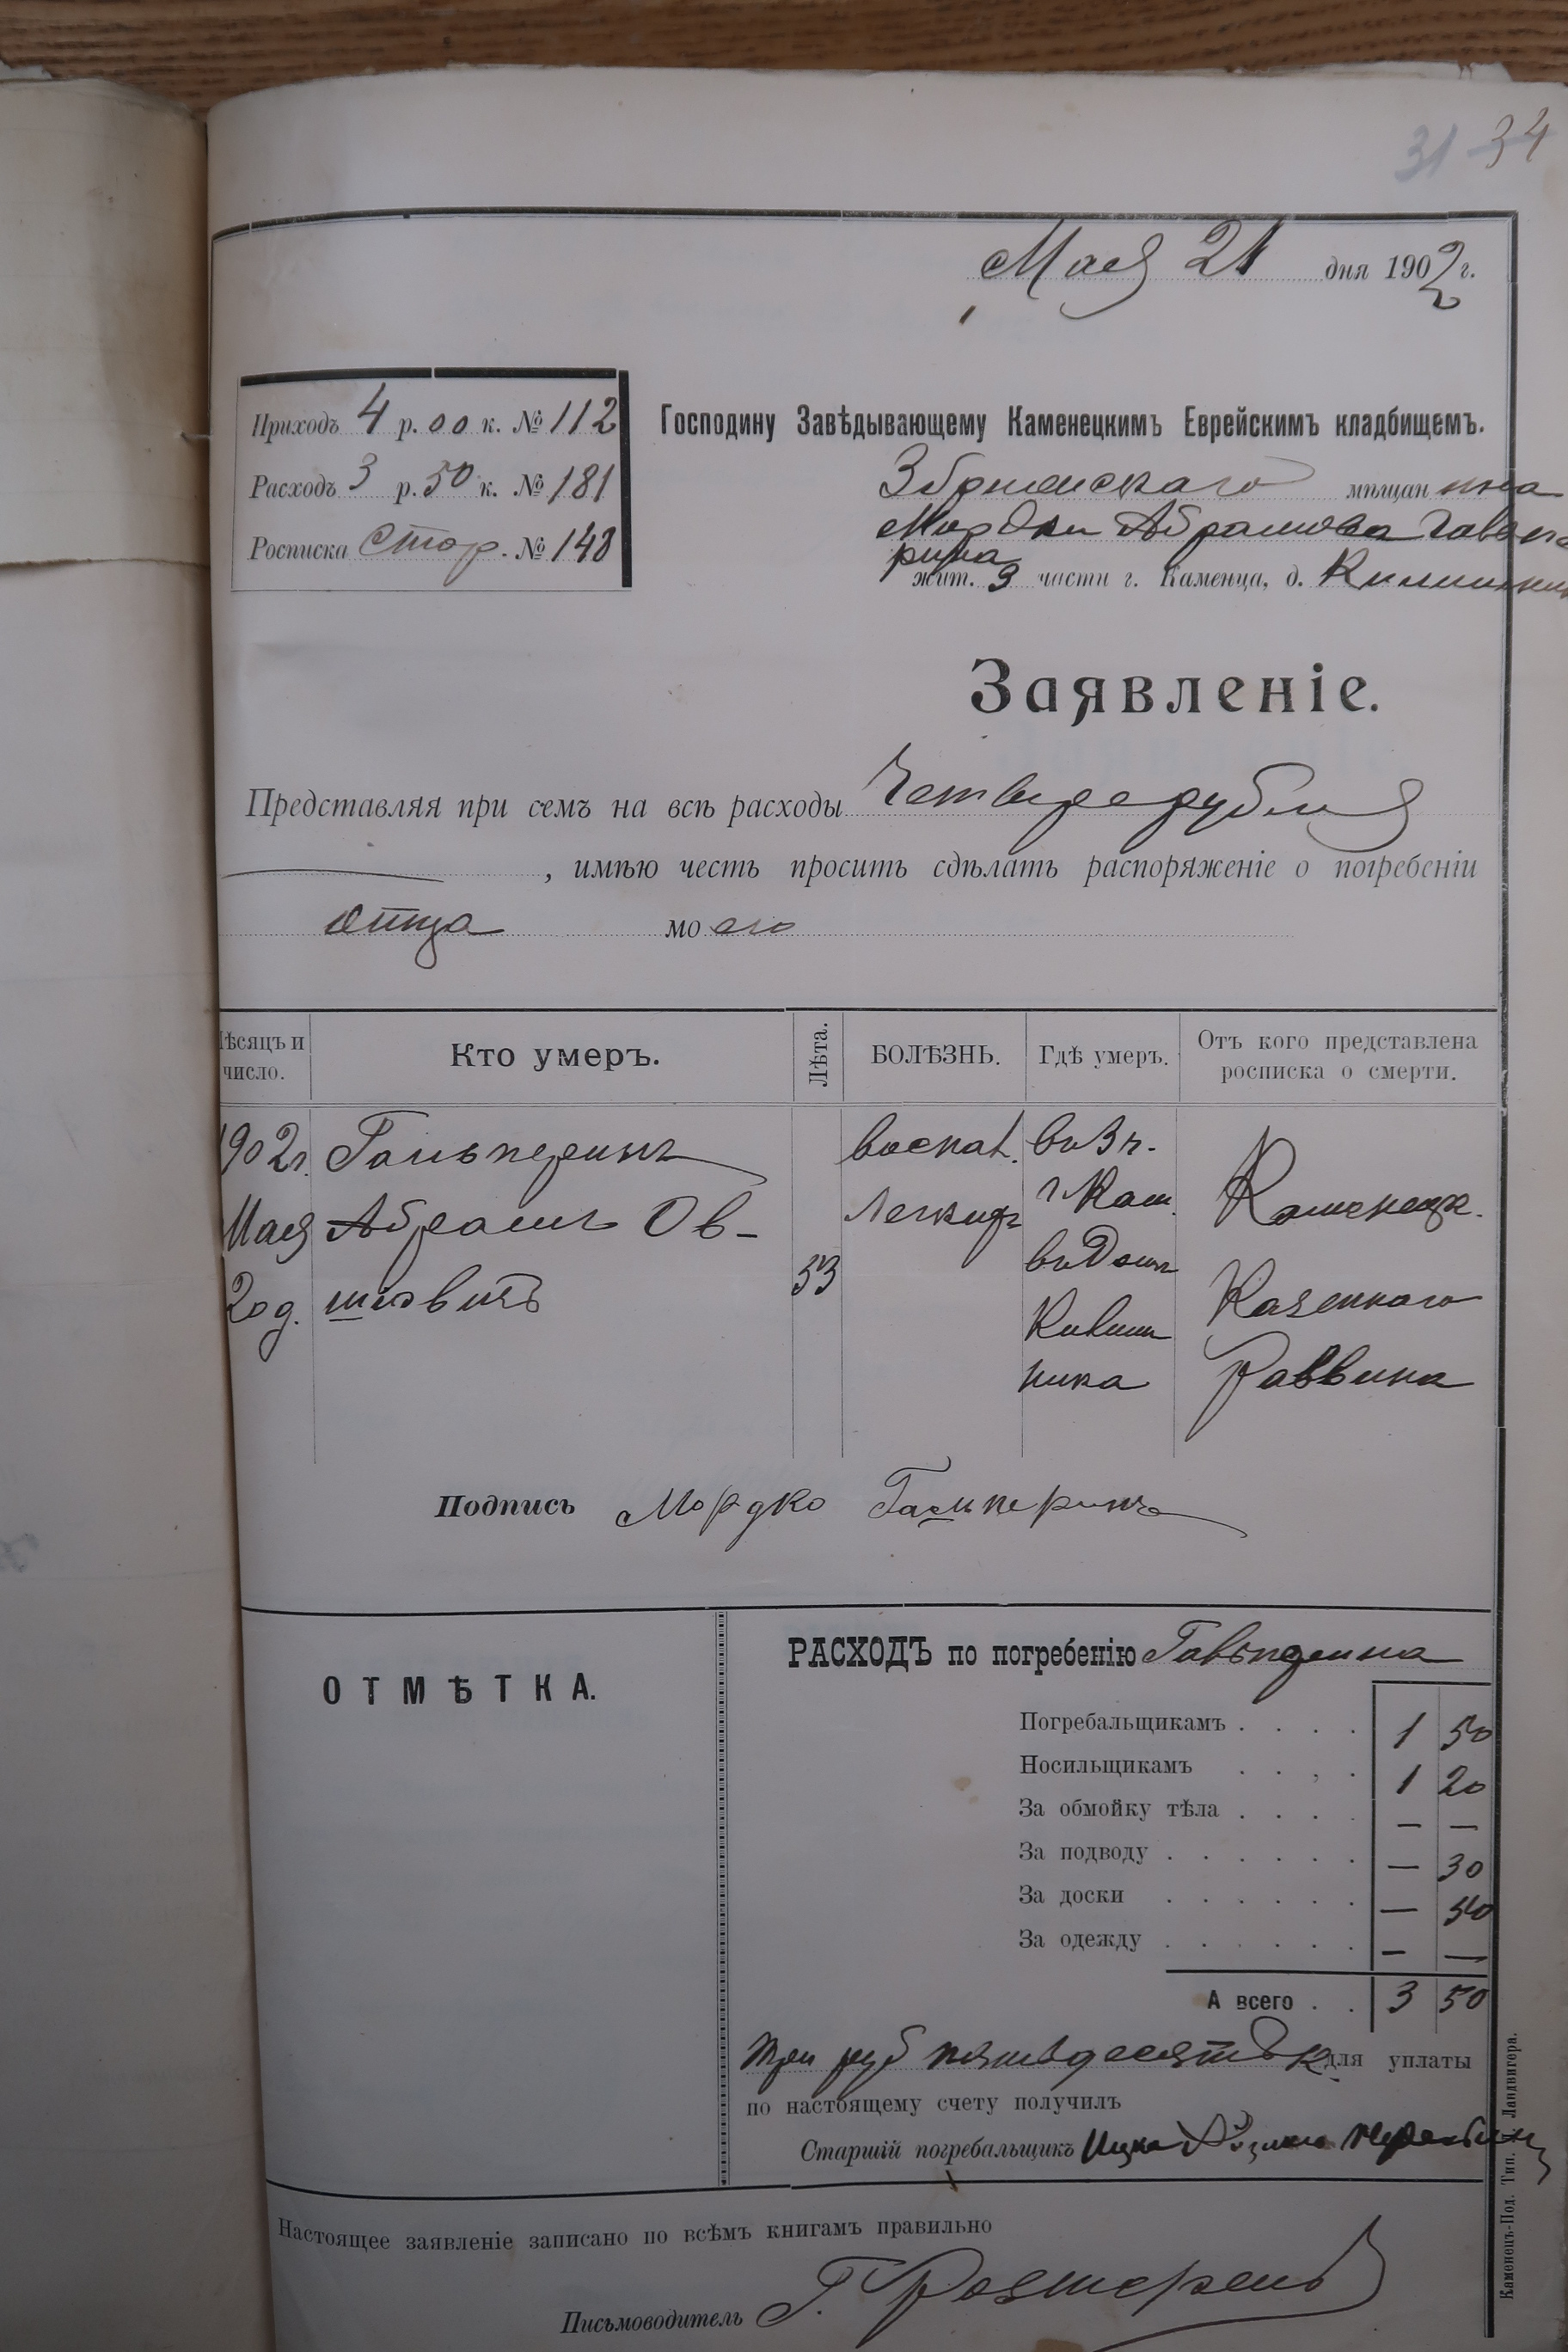 31 34
Мая 21 дня 1902 г.
Приходъ 4 р. 00 к. № 112
Расходъ 3 р. 50 к. № 181
Росписка Стор. № 148
Господину Завѣдывающему Каменецкимъ Еврейскимъ кладбищемъ.
мѣщан ина
Мордки Абрамова
жит. 3 части г. Каменца, д.
Заявленіе.
Представляя при семъ на всѣ расходы Четыре рубля
, имѣю честь просить сдѣлать распоряженіе о погребеніи
отца моего
Мѣсяцъ и число. Кто умеръ. Лѣта. БОЛѢЗНЬ. Гдѣ умеръ. Отъ кого представлена росписка о смерти.
1902 г. Гальперинъ воспал. въ 3 ч.
Мая Абрамъ Ов- Легкихъ г. Кам. Каменецк.
20 д. шіовичъ 53 въ Домѣ Казеннаго
ника Раввина
Подпись Мордко Гальперинъ
ОТМѢТКА.
РАСХОДЪ по погребенію Гальперина
Погребальщикамъ . . . . 1 50
Носильщикамъ . . . . 1 20
За обмойку тѣла . . . . — —
За подводу . . . . . . — 30
За доски . . . . . . — 50
За одежду . . . . . . — —
А всего . . 3 50
Три руб пятьдесятъ к для уплаты
по настоящему счету получилъ
Старшій погребальщикъ Ицко
Настоящее заявленіе записано по всѣмъ книгамъ правильно
Письмоводитель Г.
Каменецъ-Под. Тип. Ландвигора.